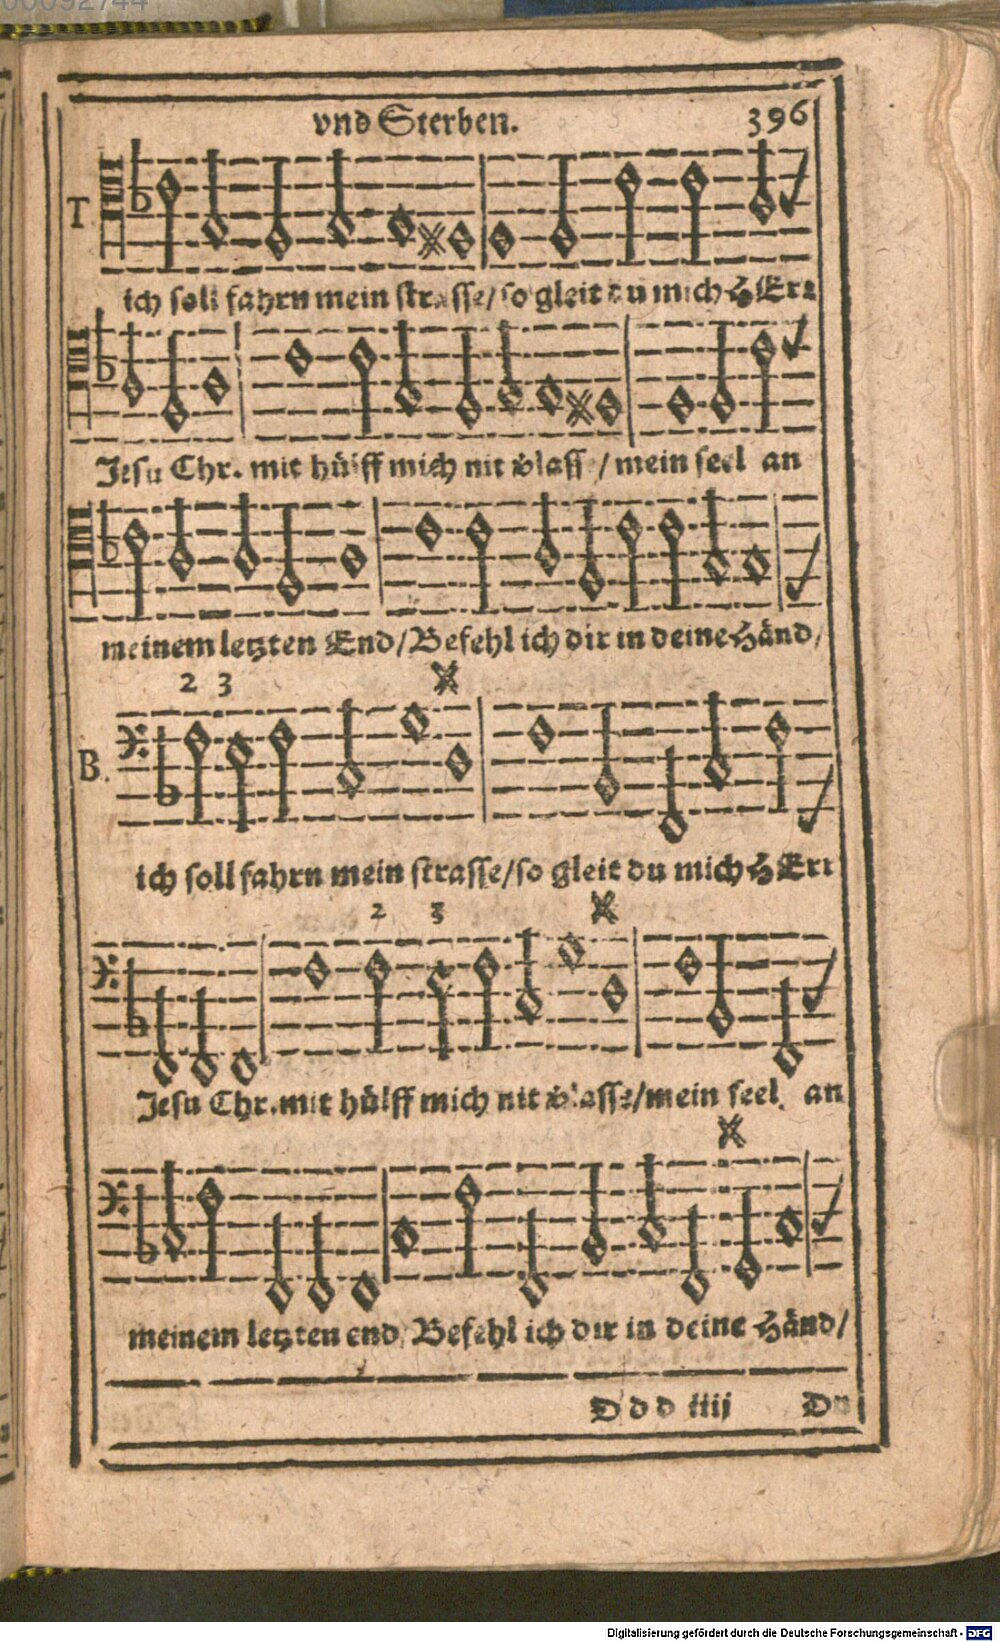 00092744
vnd Sterben. 396
T
ich soll fahrn mein strasse/ so gleit du mich HErr
Jesu Chr. mit hülff mich nit vlass/ mein seel an
meinem letzten End/ Befehl ich dir in deine Händ/
2 3
B.
ich soll fahrn mein strasse/ so gleit du mich HErr
2 3
Jesu Chr. mit hülff mich nit vlasse/ mein seel an
meinem letzten end/ Befehl ich dir in deine Händ/
D d d iiij Du
Digitalisierung gefördert durch die Deutsche Forschungsgemeinschaft - DFG